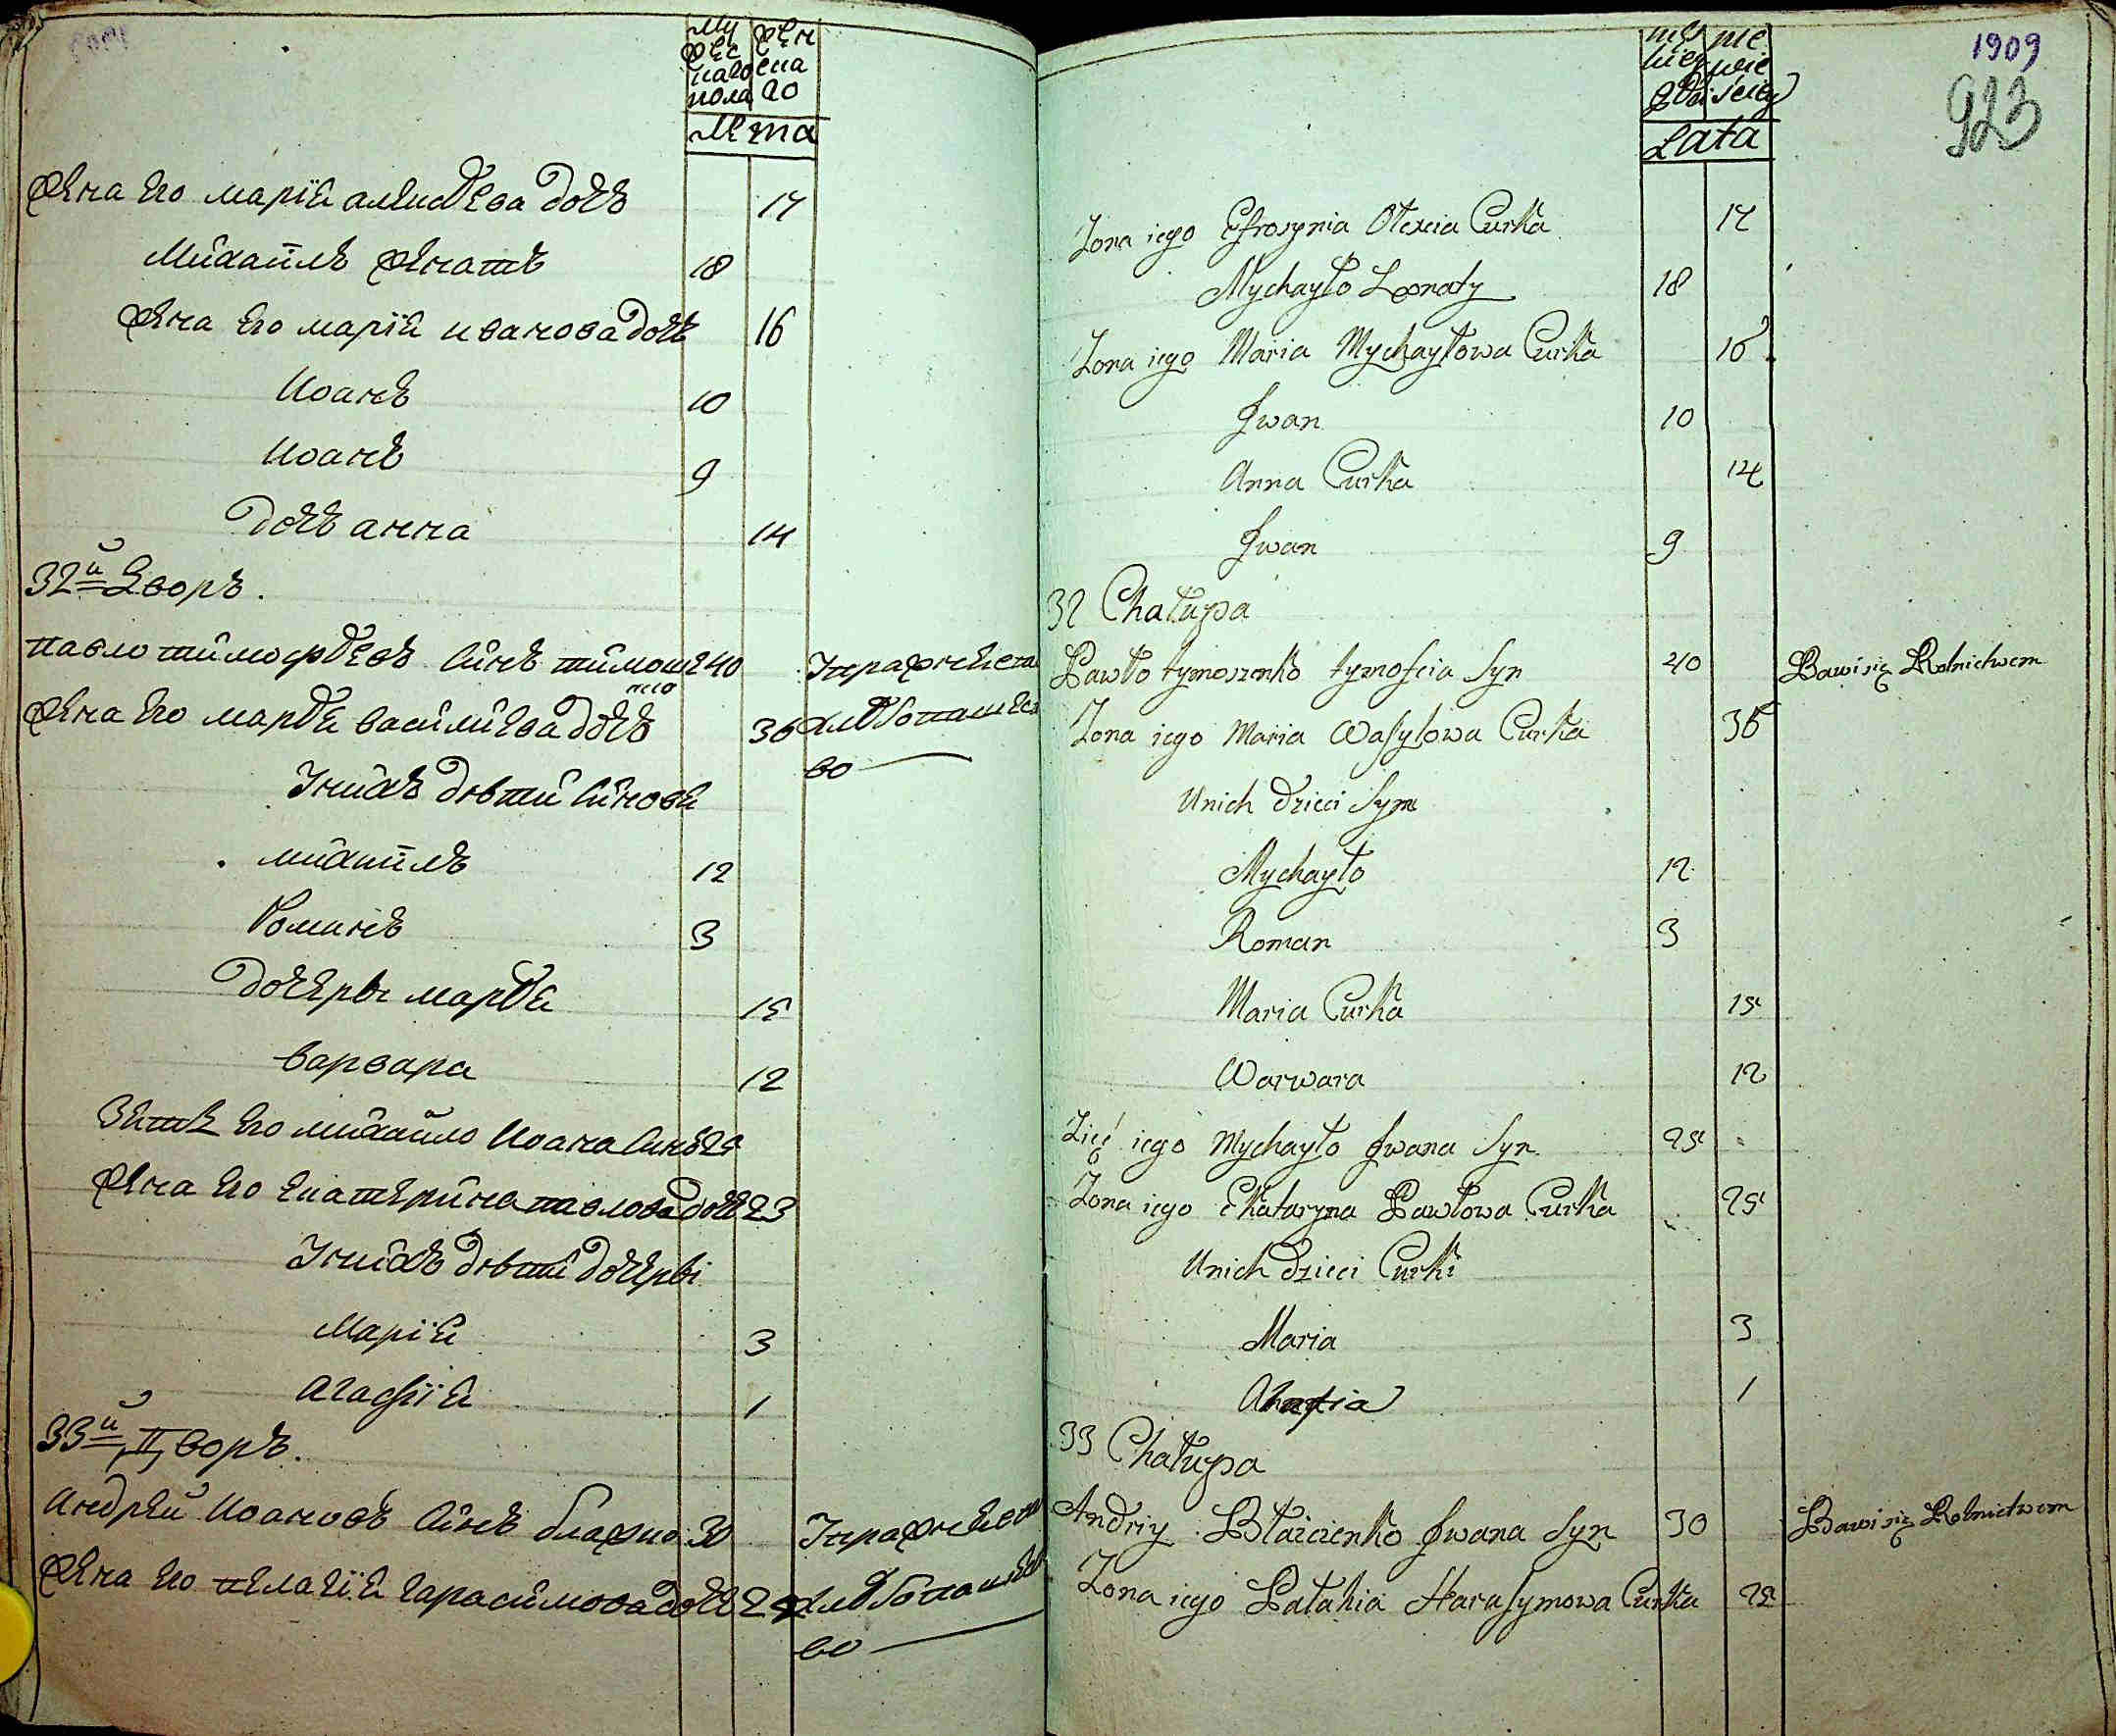 муѢес
наго
пола
жен
сна
го
Лѣта
Жена его марїя алексѣева дочь 17
Михаилъ женатъ 18
Жена его марїя иванова дочь 16
Иоанъ 10
Иоанъ 9
дочь анна 14
32й Дворъ.
Павло тимофѣевъ синъ тимоше 40
нко
Упражняется
Жена его марѣя василиева дочь 36
хлѣбопашес
во
У нихъ дѣти синовя
михаилъ 12
Романъ 3
дочеры марѣя 15
варвара 12
Зять его михайло Иоана синъ 25
Жена его екатерина павлова дочь 23
У нихъ дѣти дочеры
Марїя 3
Агафїя 1
33й Дворъ.
Андрей Иоановъ синъ блажко 30
Упражняется
Жена его пелагїя гарасимова дочь
хлѣбопашес
во
1909
923
Lata
Zona iego Efrosynia Olexeia Curka 17
Mychayło Zonaty 18
Zona iego Maria Mychayłowa Curka 16
Jwan 10
Anna Curka 14
Jwan 9
32 Chałupa
Pawło tymoszenko tymofeia Syn 40 Bawi się Rolnictwem
Zona iego Maria Wasylowa Curka 36
Unich dzieci Syni
Mychayło 12
Roman 3
Maria Curka 15
Warwara 12
Zięć iego Mychayło Jwana Syn 25
Zona iego Ekataryna Pawłowa Curka 25
Unich dzieci Curki
Maria 3
Ahafia 1
33 Chałupa
Andriy Błaiczenko Jwana Syn 30 Bawi się Rolnictwem
Zona iego Pałahia Harasymowa Curka 25